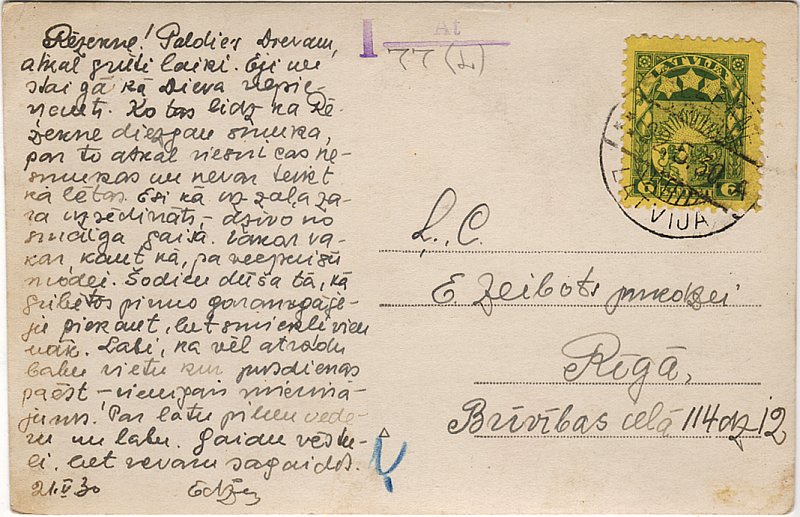 Rēzeknē! Paldies Dievam,
atkal grūti laiki. Eji un
staigā kā Dieva nepie-
ņemts. Ko tas līdz ka Rē-
zekne diezgan smuka,
par to atkal viesnīcas ne-
smukas un nevar teikt
ka lētas. Esi kā uz zaļa za-
ra uzsēdināts, - dzīvo no
smalga gaisā. Vakar va-
kar kaut kā, pa veepusu
modei. Šodien dūša tā, ka
gribētos pirmo garāmgājē-
ju piekaut, bet smiekli vien
nāk. Labi, ka vēl atradu
labu vietu kur pusdienas
paēst - vienīgais mierinā-
jums! Par latu pilnu vēde-
ru un labu. Gaidu vēstu-
li, bet nevaru sagaidīt.
21.V 30
At
77 (L)
LATVIJA
6
30
LATVIJA
Ļ. C.
E Zeibots kundzei
Rīgā,
Brīvības ielā 114 dz 12